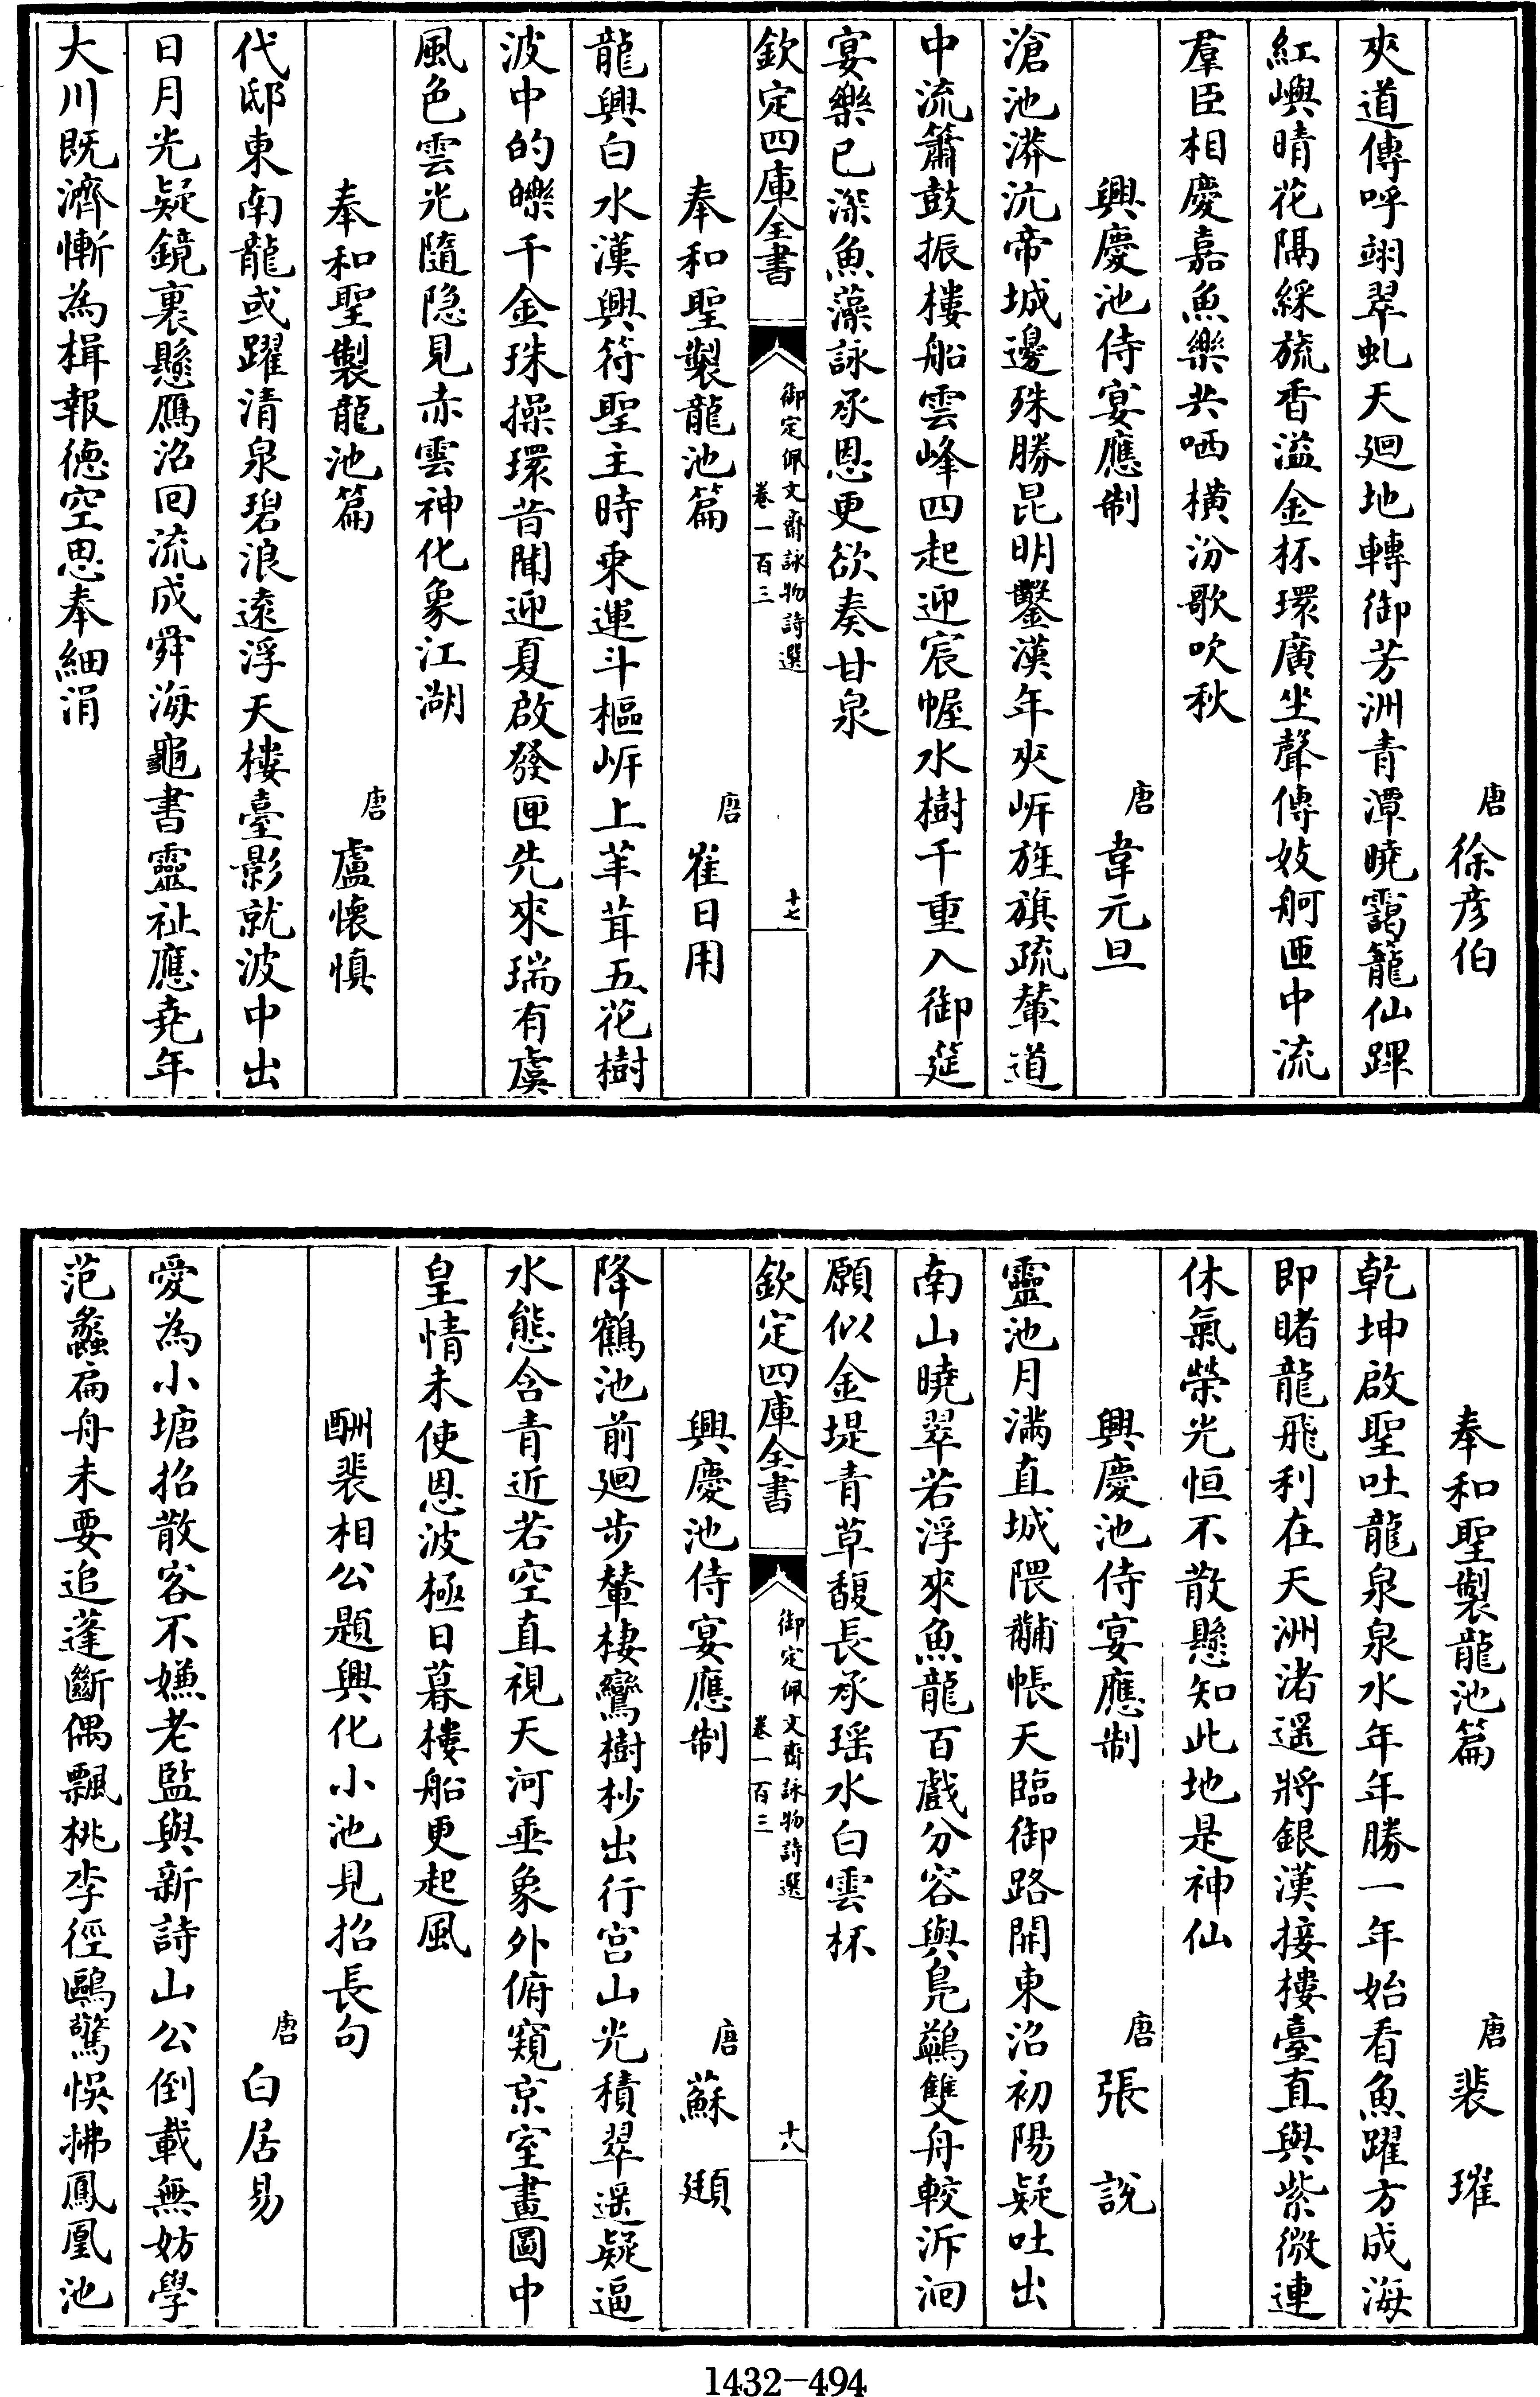 唐徐彦伯
夾道傳呼翊翠虬天廻地轉御芳洲青潭曉靄籠仙蹕
紅嶼晴花隔綵旒香溢金杯環廣坐聲傳妓舸匝中流
羣臣相慶嘉魚樂共哂橫汾歌吹秋
興慶池侍宴應制　唐韋元旦
滄池漭沆帝城邊殊勝昆明鑿漢年夾岍旌旗疏輦道
中流簫鼓振樓船雲峰四起迎宸幄水樹千重入御筵
宴樂已深魚藻詠承恩更欲奏甘泉
欽定四庫全書　御定佩文齋詠物詩選　卷一百三　十七
奉和聖製龍池篇　唐崔日用
龍興白水漢興符聖主時乘運斗樞岍上茸茸五花樹
波中的皪千金珠操環昔聞迎夏啟發匣先來瑞有虞
風色雲光隨隐見赤雲神化象江湖
奉和聖製龍池篇　唐盧懷慎
代邸東南龍或躍清泉碧浪遠浮天樓臺影就波中出
日月光疑鏡裏懸鴈沼回流成舜海龜書靈祉應堯年
大川既濟慚為楫報德空思奉細涓
奉和聖製龍池篇　唐裴璀
乾坤啟聖吐龍泉泉水年年勝一年始看魚躍方成海
即睹龍飛利在天洲渚遥將銀漢接樓臺直與紫微連
休氣榮光恒不散懸知此地是神仙
興慶池侍宴應制　唐張說
靈池月滿直城隈黼帳天臨御路開東沼初陽疑吐出
南山曉翠若浮來魚龍百戲分容與鳧鷁雙舟較泝洄
願似金堤青草馥長承瑶水白雲杯
欽定四庫全書　御定佩文齋詠物詩選　卷一百三　十八
興慶池侍宴應制　唐蘇頲
降鶴池前廻步輦棲鸞樹杪出行宫山光積翠遥疑逼
水態含青近若空直視天河垂象外俯窺京室畫圖中
皇情未使恩波極日暮樓船更起風
酬裴相公題興化小池見招長句
唐白居易
愛為小塘招散客不嫌老監與新詩山公倒載無妨學
范蠡扁舟未要追蓬斷偶飄桃李徑鷗驚悞拂鳳凰池
1432-494